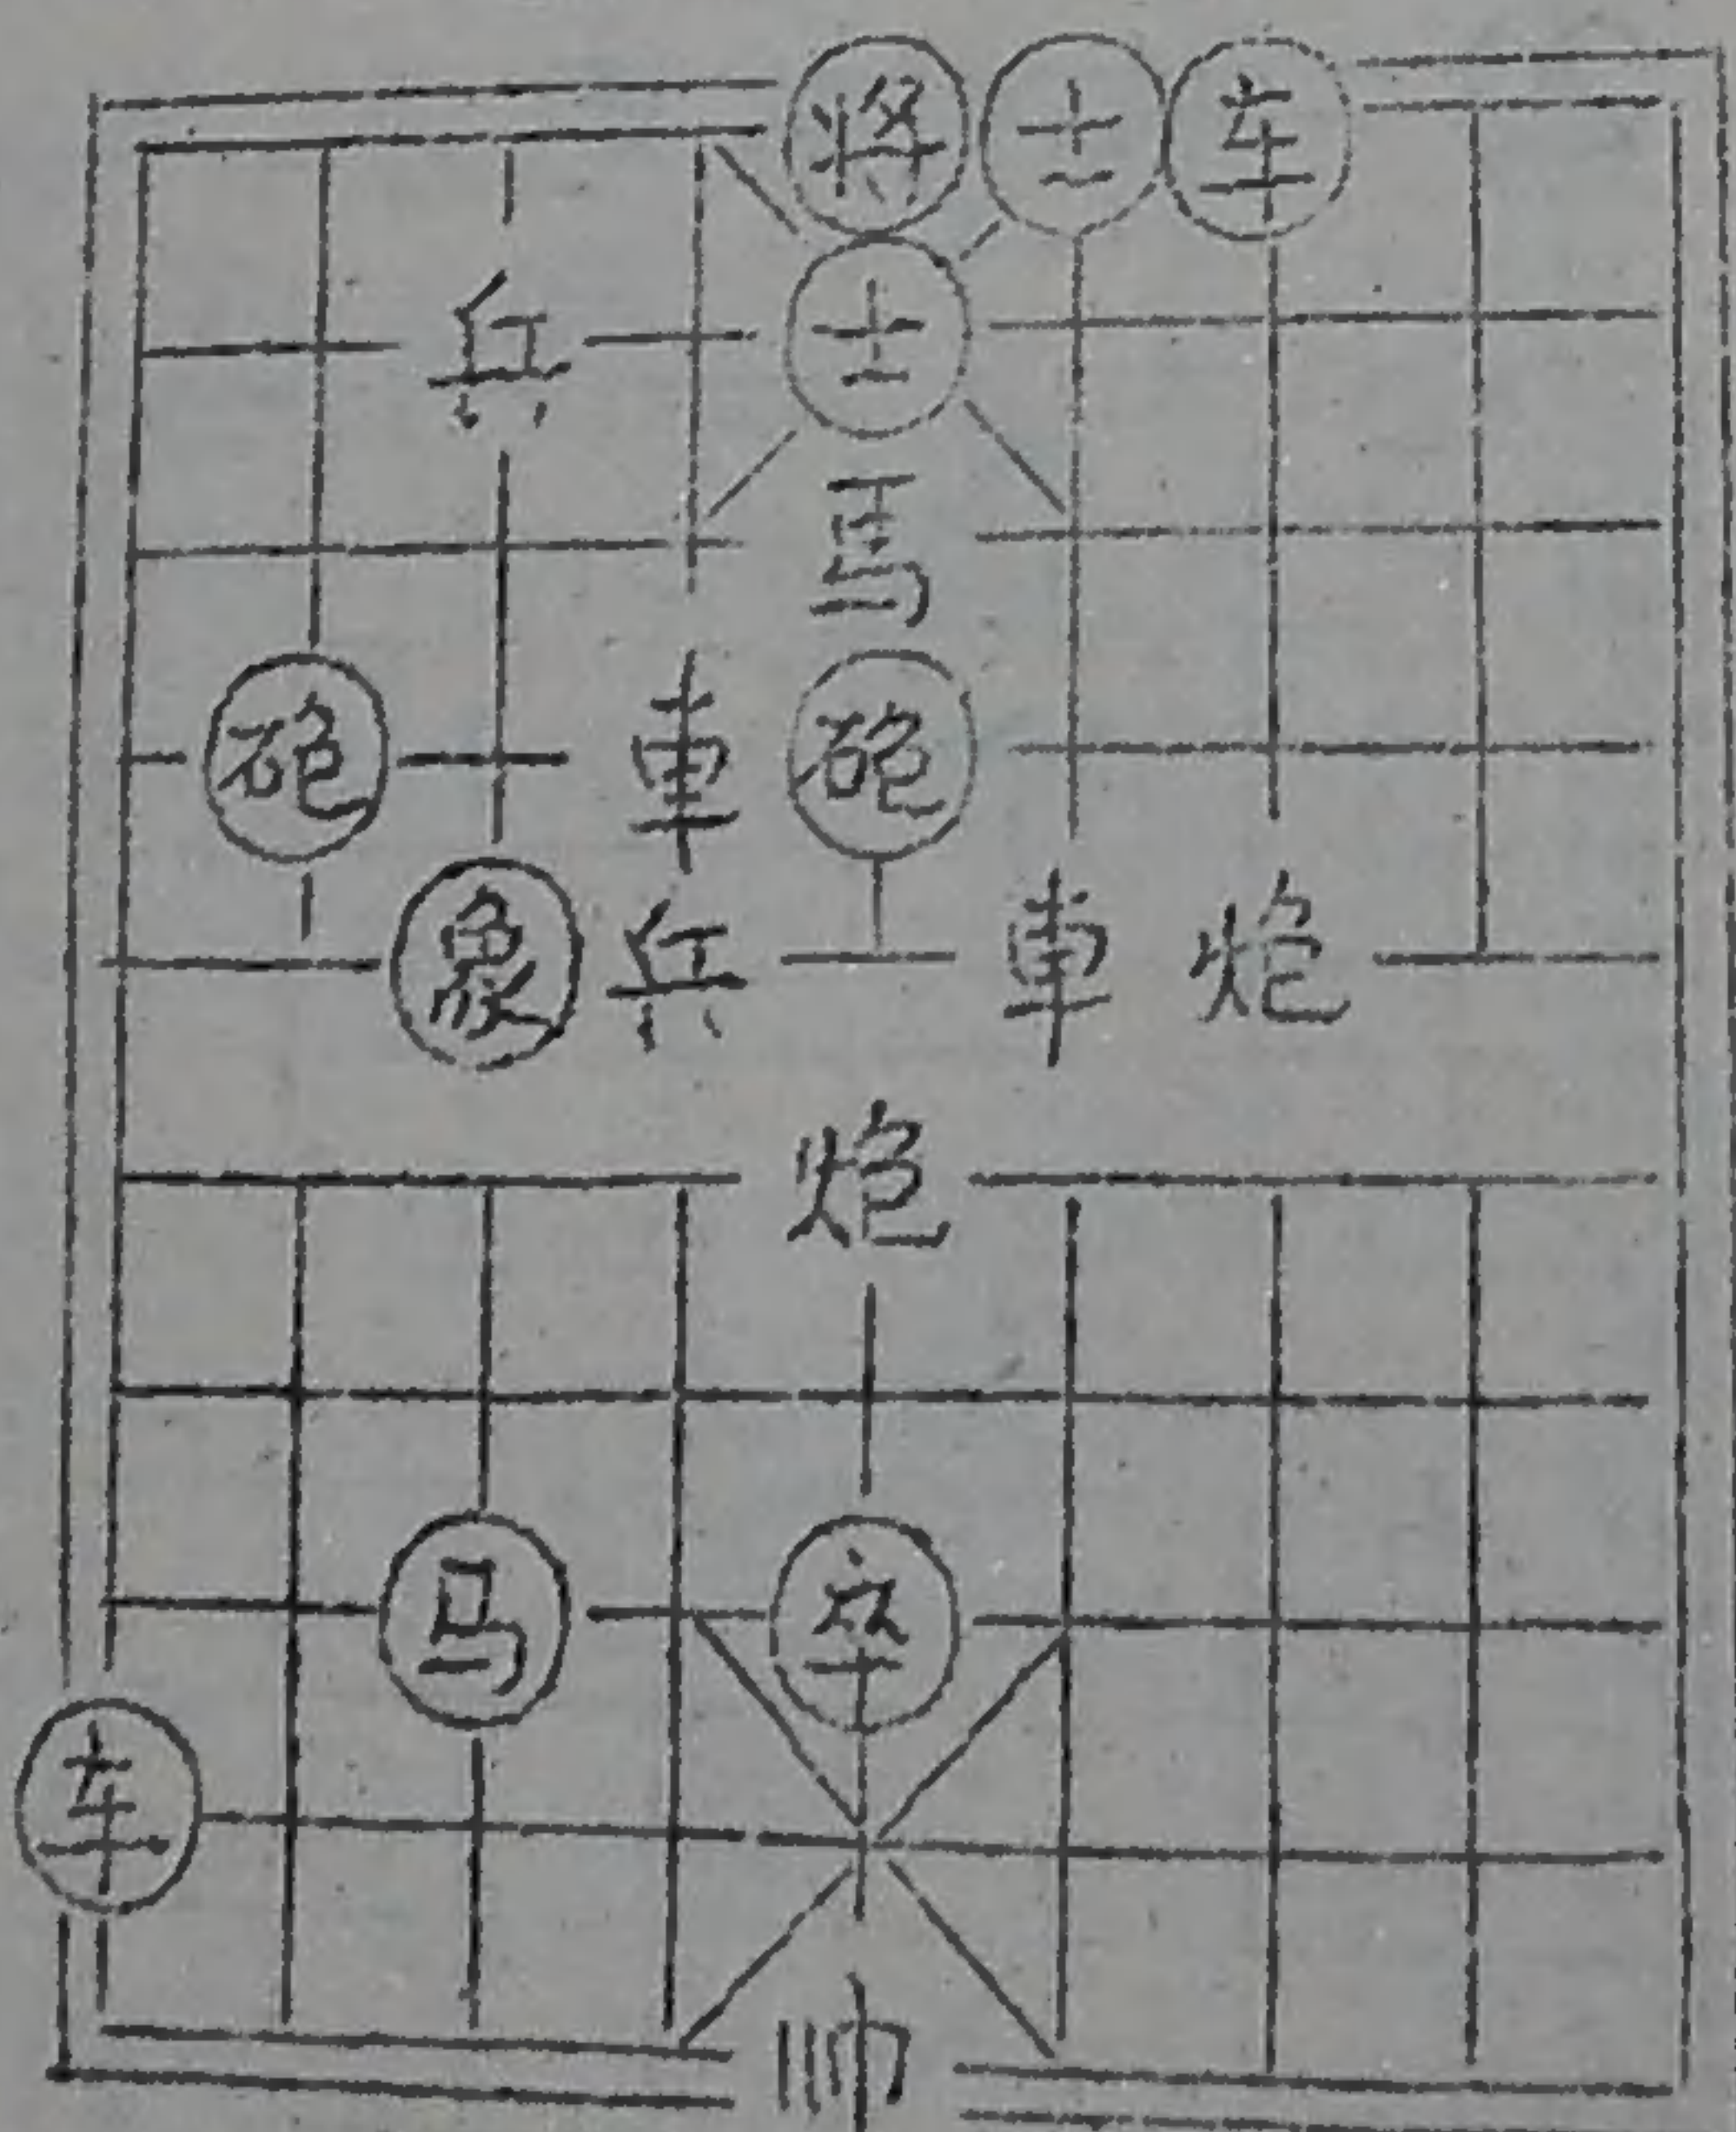 将士车
兵士
馬
砲車砲
象兵車炮
炮
马卒
车
帅